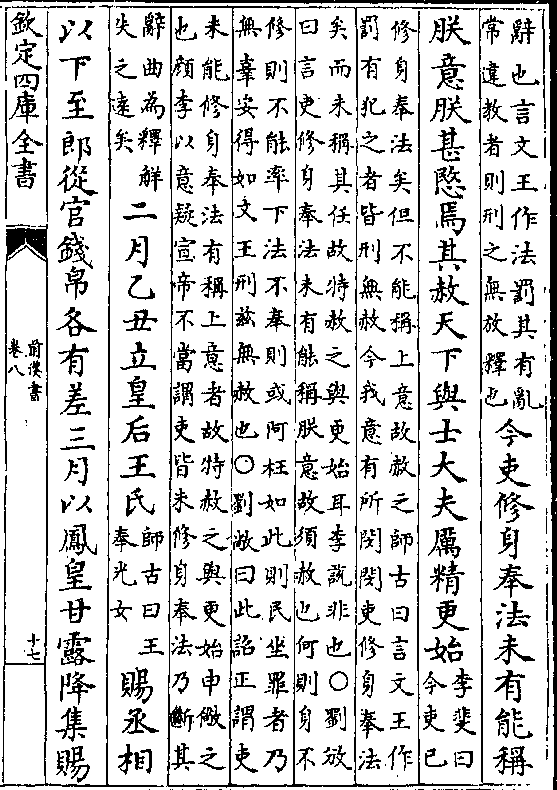 辭也言文王作法罰其有亂
常違教者則刑之無放釋也
今吏修身奉法未有能稱
朕意朕甚愍焉其赦天下與士大夫厲精更始
李斐曰
今吏已
修身奉法矣但不能稱上意故赦之師古曰言文王作
罰有犯之者皆刑無赦今我意有所閔閔吏修身奉法
矣而未稱其任故特赦之與更始耳李說非也○劉攽
曰言吏修身奉法未有能稱朕意故須赦也何則身不
修則不能率下法不奉則或阿枉如此則民坐罪者乃
無辜安得如文王刑茲無赦也○劉敞曰此詔正謂吏
未能修身奉法有稱上意者故特赦之與更始申儆之
也顧李以意疑宣帝不當謂吏皆未修身奉法乃斷其
辭曲為釋解
失之遠矣
二月乙丑立皇后王氏
師古曰王
奉光女
賜丞相
以下至郎從官錢帛各有差三月以鳳皇甘露降集賜
欽定四庫全書
前漢書
卷八
十七